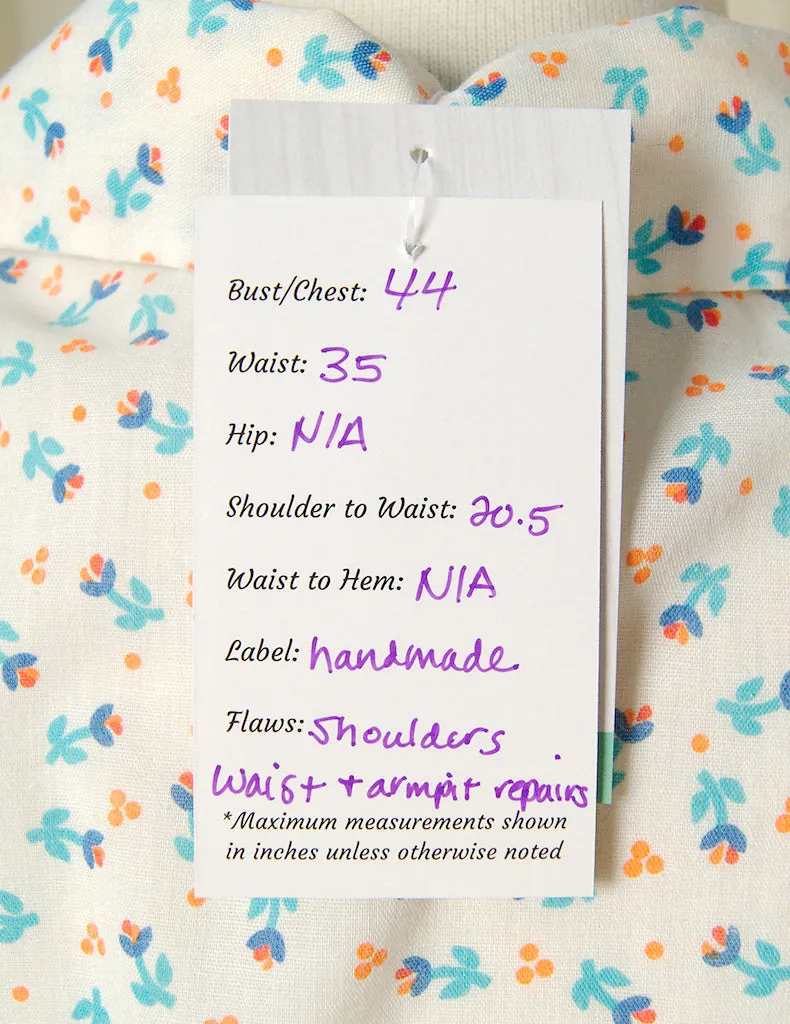 Bust/Chest: 44
Waist: 35
Hip: N/A
Shoulder to Waist: 20.5
Waist to Hem: N/A
Label: handmade.
Flaws: Shoulders
Waist + armpit repairs
*Maximum measurements shown
in inches unless otherwise noted